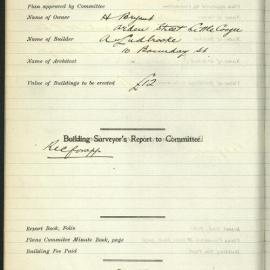 Plan approved by Committee
Name of Owner H Bryant
Arden Street Little Coogee
Name of Builder A Ludbrooke
10 Boundary St
Name of Architect
Value of Buildings to be erected £12
Building Surveyor's Report to Committee.
Rec for app.
Report Book, Folio
Plans Commitee Minute Book, page
Building Fee Paid